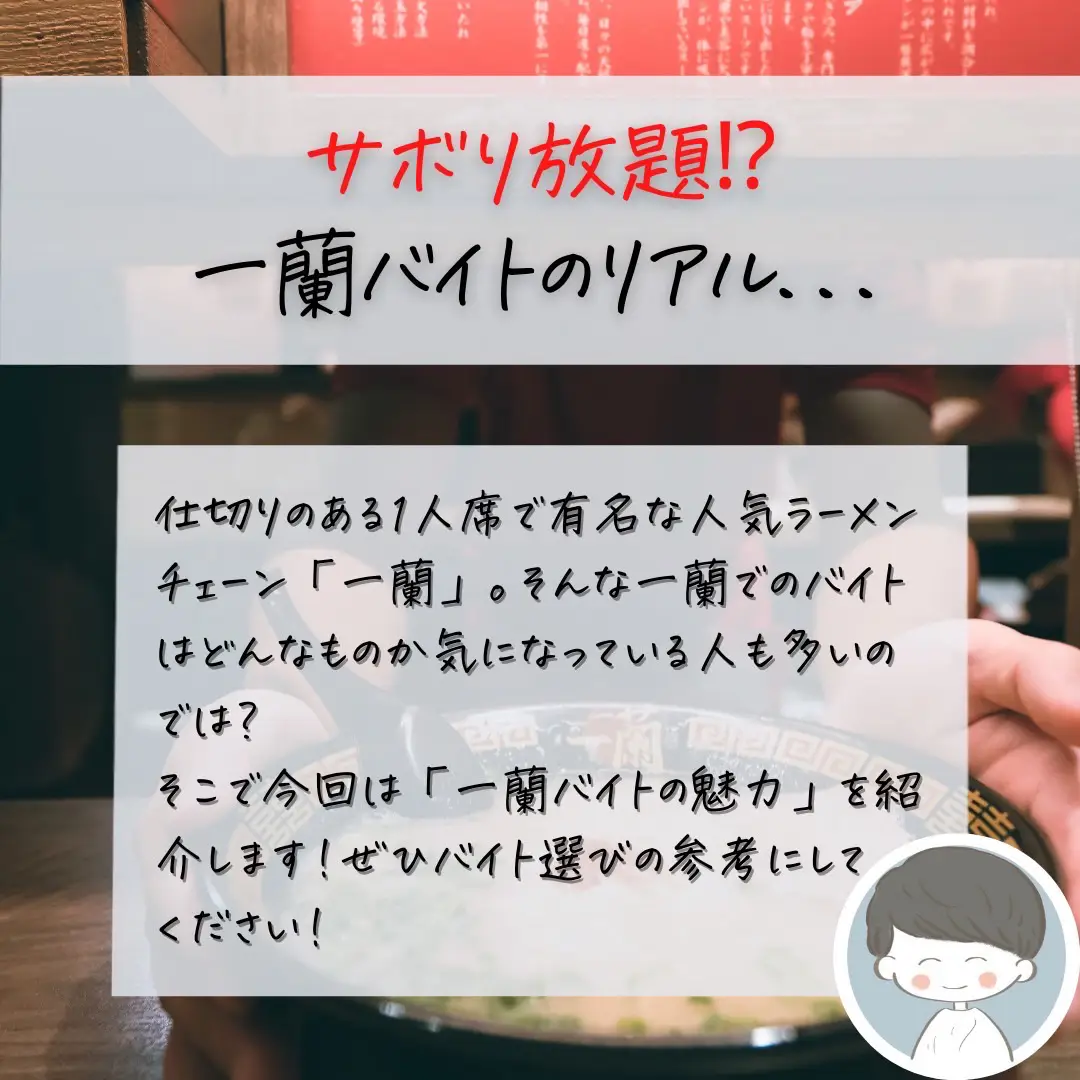 サボり放題!?
一蘭バイトのリアル...
仕切りのある1人席で有名な人気ラーメン
チェーン「一蘭」。そんな一蘭でのバイト
はどんなものか気になっている人も多いの
では?
そこで今回は「一蘭バイトの魅力」を紹
介します!ぜひバイト選びの参考にして
ください!
一蘭